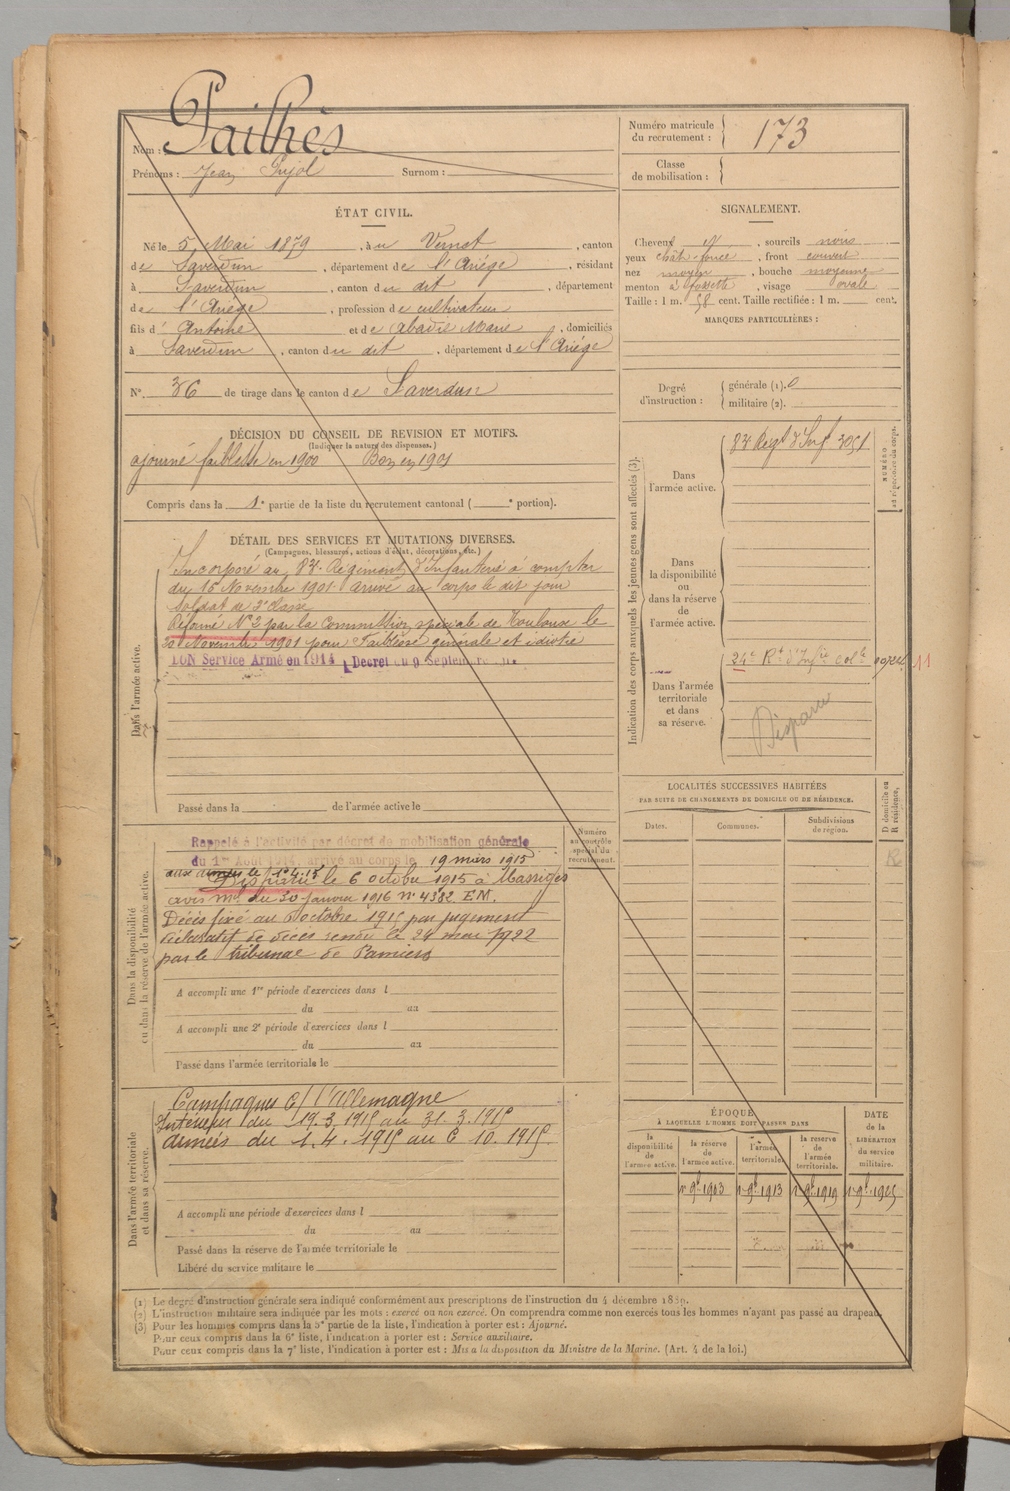 Nom : Pailhès
Prénoms : Jean Pujol Surnom :
Numéro matricule du recrutement : 173
Classe de mobilisation :
ÉTAT CIVIL.
Né le 5 Mai 1879, à u Vernet, canton
de Saverdun, département de l'Ariége, résidant
à Saverdun, canton du dit, département
de l'Ariége, profession de cultivateur
fils d' Antoine et de Abadie Marie, domiciliés
à Saverdun, canton du dit, département de l'Ariége
N° 36 de tirage dans le canton de Saverdun
SIGNALEMENT.
Cheveux et, sourcils noirs
yeux chât. foncé, front couvert
nez moyen, bouche moyenne
menton à fossette, visage ovale
Taille : 1 m. 58 cent. Taille rectifiée : 1 m. cent.
MARQUES PARTICULIÈRES :
Degré d'instruction : générale (1). 0
militaire (2).
DÉCISION DU CONSEIL DE REVISION ET MOTIFS.
(Indiquer la nature des dispenses.)
ajourné faiblesse en 1900 Bon en 1901
Compris dans la 1e partie de la liste du recrutement cantonal ( e portion).
DÉTAIL DES SERVICES ET MUTATIONS DIVERSES.
(Campagnes, blessures, actions d'éclat, décorations, etc.)
Dans l'armée active.
Incorporé au 83e Régiment d'Infanterie à compter
du 15 Novembre 1901 arrivé au corps le dit jour
soldat de 2e classe
Réformé N° 2 par la Commission spéciale de Toulouse le
30 Novembre 1901 pour Faiblesse générale et idiotie
BON Service Armé en 1914 Décret du 9 Septembre
Passé dans la de l'armée active le
Indication des corps auxquels les jeunes gens sont affectés (3).
NUMÉRO au répertoire du corps.
Dans l'armée active. 83e Regt d'Inf 3051
Dans la disponibilité ou dans la réserve de l'armée active.
Dans l'armée territoriale et dans sa réserve. 24e Rt d'Infie Colle 11
Disparu
LOCALITÉS SUCCESSIVES HABITÉES
PAR SUITE DE CHANGEMENTS DE DOMICILE OU DE RÉSIDENCE.
Dates. Communes. Subdivisions de région. D domicile ou R résidence.
R
Dans la disponibilité ou dans la réserve de l'armée active.
Numéro au contrôle spécial du recrutement.
Rappelé à l'activité par décret de mobilisation générale
du 1er Août 1914, arrivé au corps le 19 mars 1915
aux armées le 1-4-15
Disparu le 6 octobre 1915 à Massiges
avis Mel du 30 janvier 1916 n° 4382 EM.
Décès fixé au 6 octobre 1915 par jugement
déclaratif de décès rendu le 24 mai 1922
par le tribunal de Pamiers
A accompli une 1re période d'exercices dans l
du au
A accompli une 2e période d'exercices dans l
du au
Passé dans l'armée territoriale le
Dans l'armée territoriale et dans sa réserve.
Campagnes c/ l'Allemagne
Intérieur du 19.3.1915 au 31.3.1915
armées du 1.4.1915 au 6 10.1915.
A accompli une période d'exercices dans l
du au
Passé dans la réserve de l'armée territoriale le
Libéré du service militaire le
ÉPOQUE
À LAQUELLE L'HOMME DOIT PASSER DANS
la disponibilité de l'armée active.
la réserve de l'armée active.
l'armée territoriale.
la réserve de l'armée territoriale.
DATE de la LIBÉRATION du service militaire.
1er 9bre 1903 1er 9bre 1913 1er 9bre 1919 1er 9bre 1925
(1) Le degré d'instruction générale sera indiqué conformément aux prescriptions de l'instruction du 4 décembre 1889.
(2) L'instruction militaire sera indiquée par les mots : exercé ou non exercé. On comprendra comme non exercés tous les hommes n'ayant pas passé au drapeau.
(3) Pour les hommes compris dans la 5e partie de la liste, l'indication à porter est : Ajourné.
Pour ceux compris dans la 6e liste, l'indication à porter est : Service auxiliaire.
Pour ceux compris dans la 7e liste, l'indication à porter est : Mis à la disposition du Ministre de la Marine. (Art. 4 de la loi.)